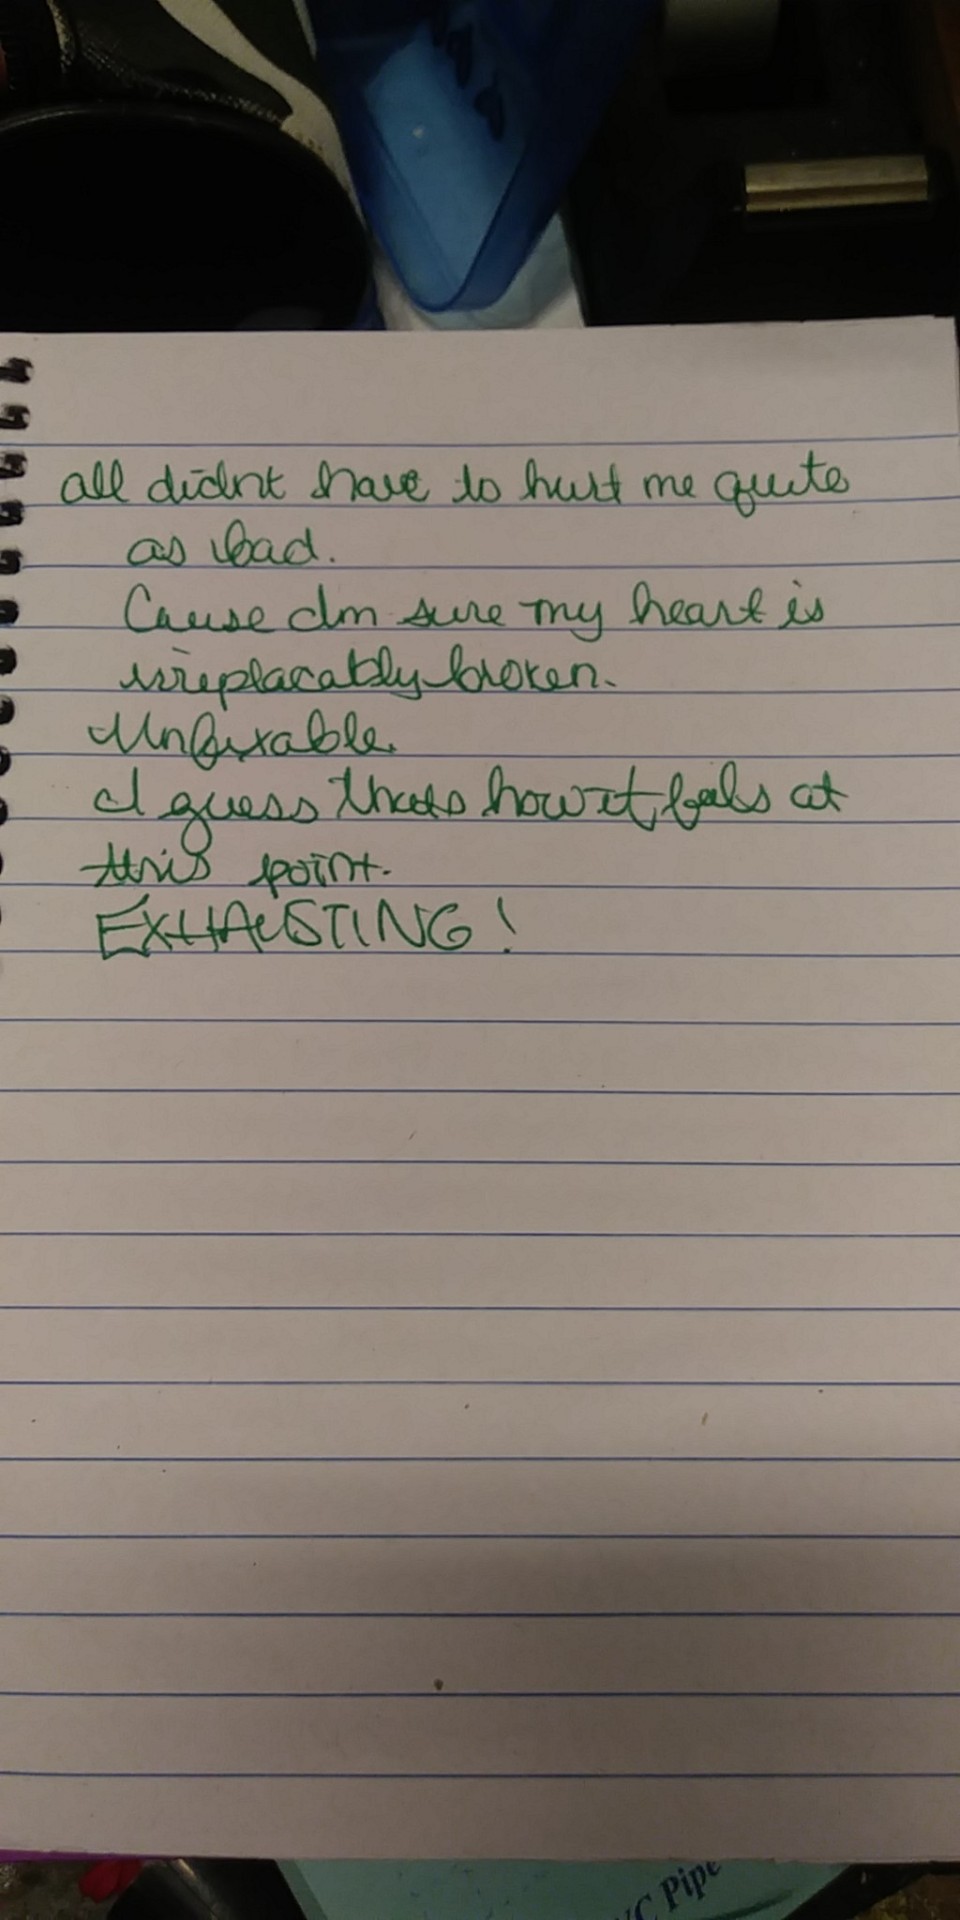 all didnt have to hurt me quite
as bad.
Cause Im sure my heart is
irreplacably broken.
Unfixable.
I guess thats how it feels at
this point.
EXHAUSTING!
C Pipe